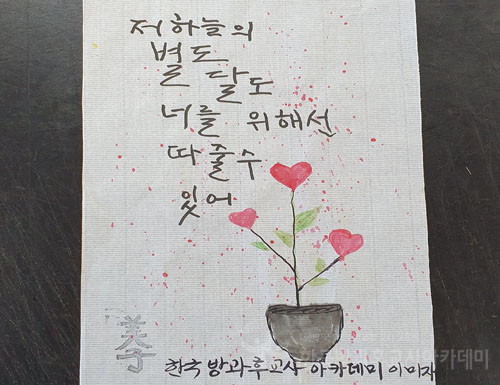 저 하늘의
별도
달도
너를 위해선
따 줄 수
있어
美子
한국 방과후교사 아카데미 이미자